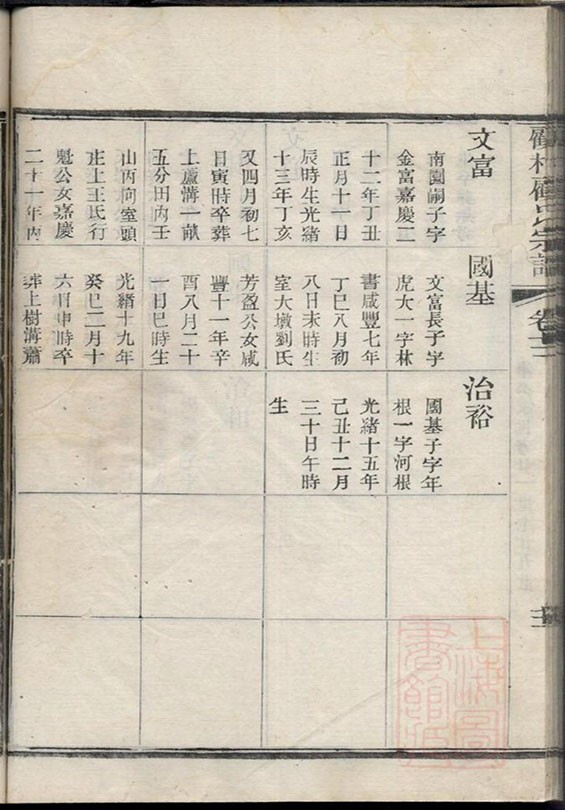 文富
南園嗣子字
金富嘉慶二
十二年丁丑
正月十一日
辰時生光緒
十三年丁亥
又四月初七
日寅時卒葬
上蘆溝一畝
五分田內壬
山丙向室頭
庄上王氏行
魁公女嘉慶
二十一年丙
國基
文富長子字
虎大一字林
書咸豐七年
丁巳八月初
八日未時生
室大墩劉氏
芳盈公女咸
豐十一年辛
酉八月二十
一日巳時生
光緒十九年
癸巳二月十
六日申時卒
葬上樹溝蕭
治裕
國基子字年
根一字河根
光緒十五年
己丑十二月
三十日午時
生
氏宗譜
卷十二
上海圖書館藏